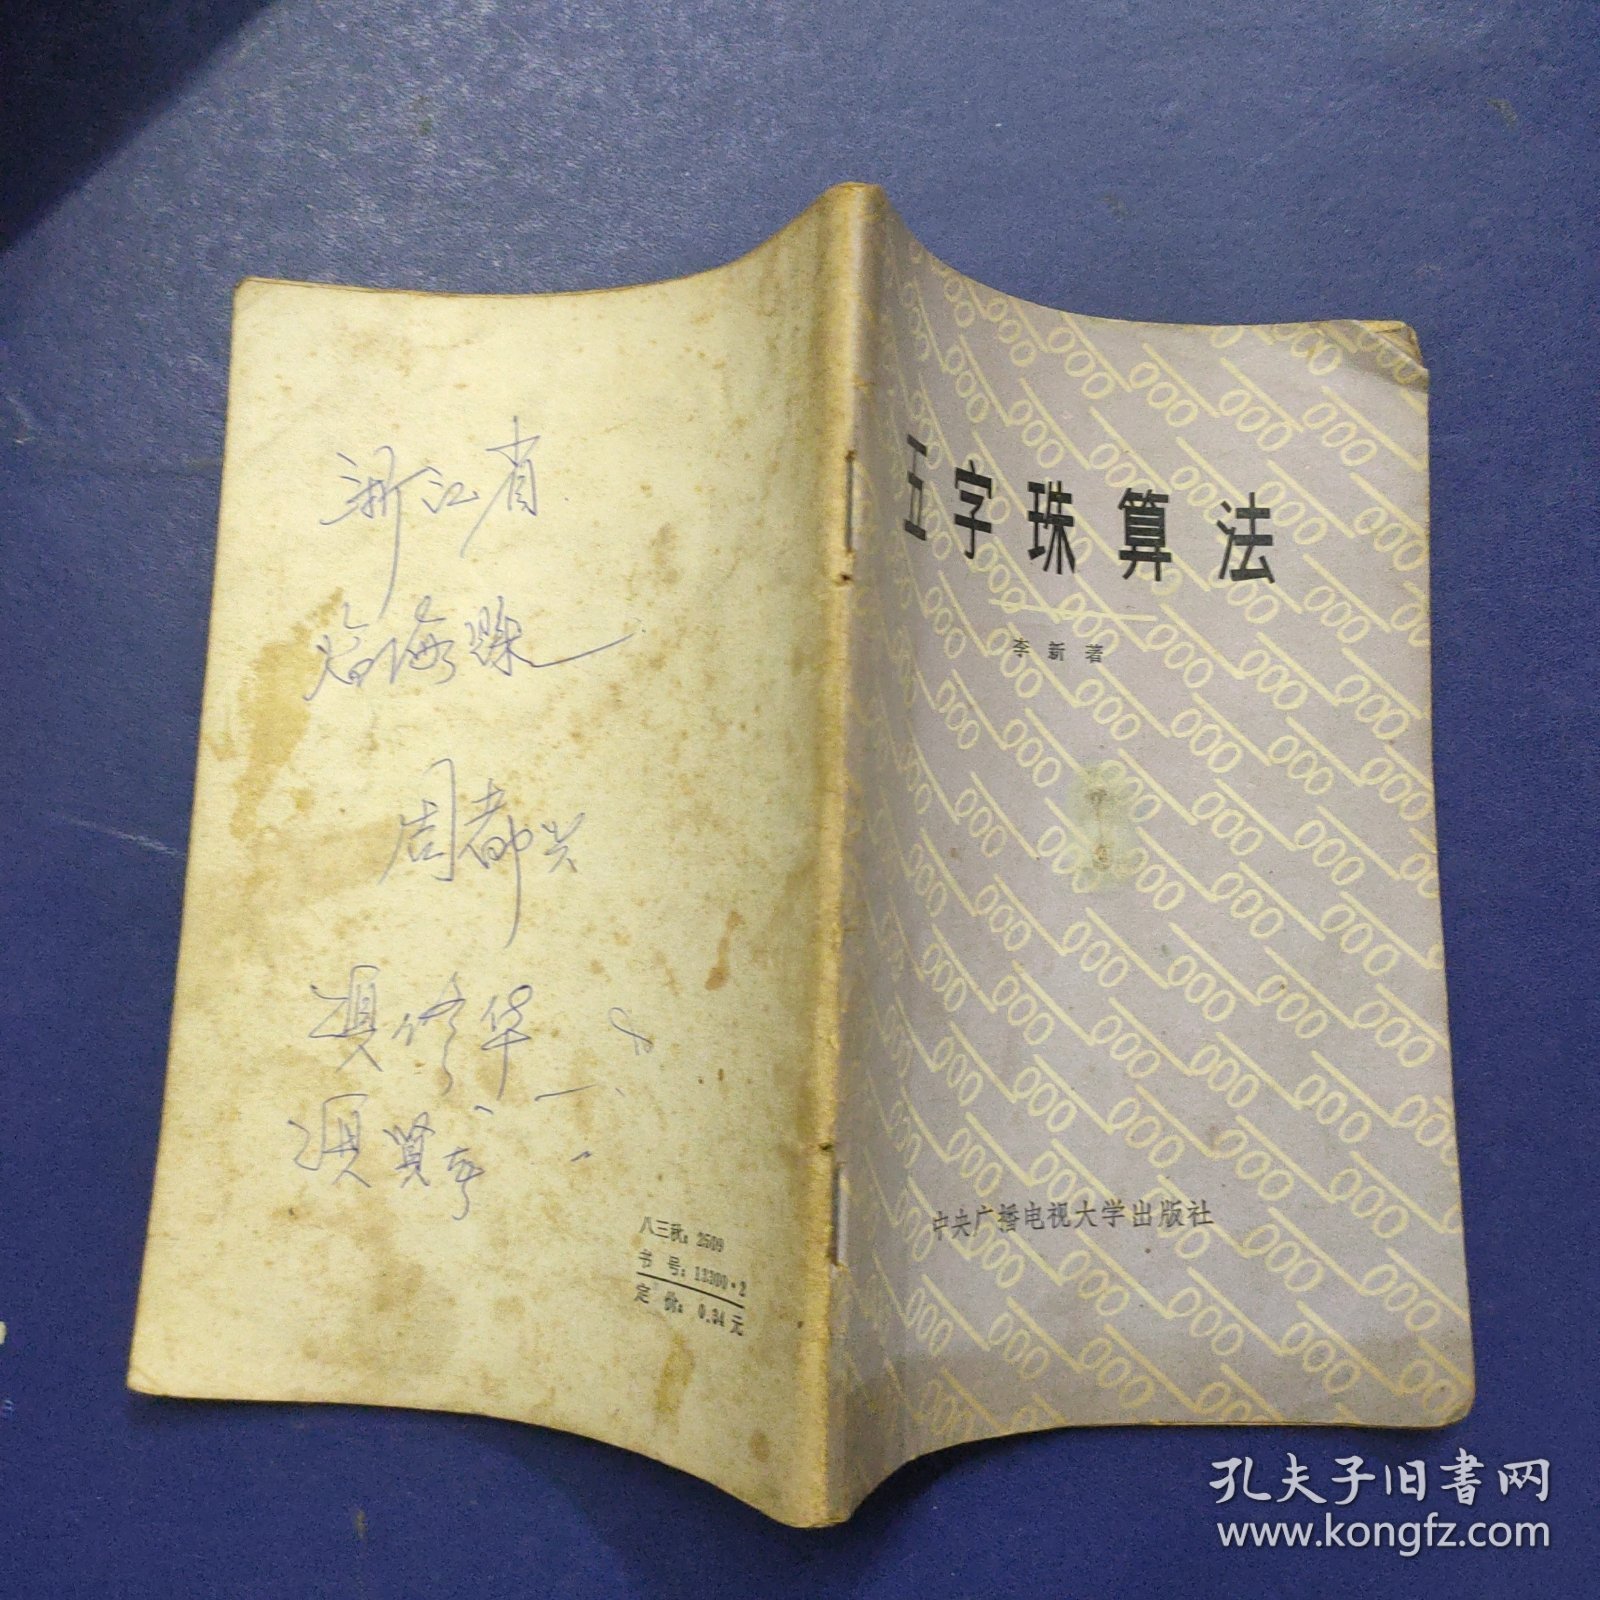 浙江省
临海县
周都兴
项修华
项贤
八三秋：2509
书号：13300·2
定价：0.34元
五字珠算法
李新著
中央广播电视大学出版社
孔夫子旧书网
www.kongfz.com